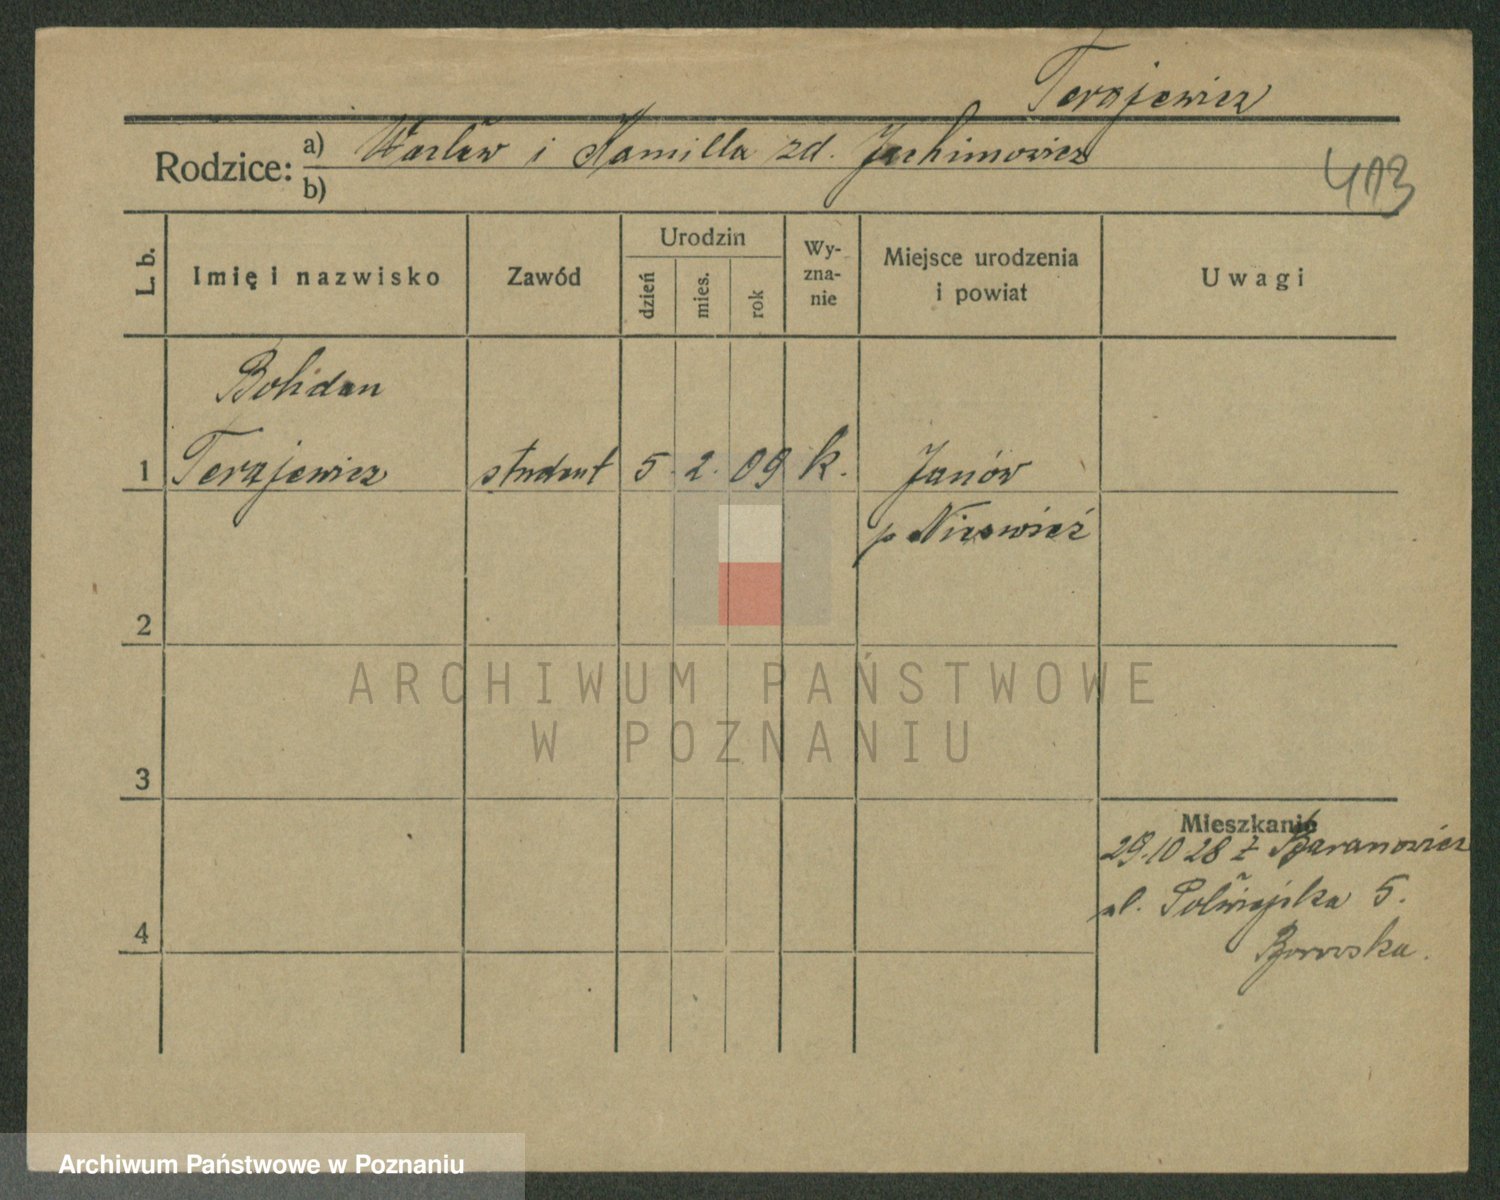 Terajewicz
Rodzice: a) Wacław i Kamilla zd. Jachimowicz
b)
413
L. b.
Imię i nazwisko
Zawód
Urodzin
dzień
mies.
rok
Wy-
zna-
nie
Miejsce urodzenia
i powiat
Uwagi
Bohdan
1 Terajewicz student 5. 2. 09 k. Janów
p Nieśwież
2
3
4
Mieszkanie
29.10 28 z Baranowicz
ul. Półwiejska 5.
Borowska.
ARCHIWUM PAŃSTWOWE
W POZNANIU
Archiwum Państwowe w Poznaniu